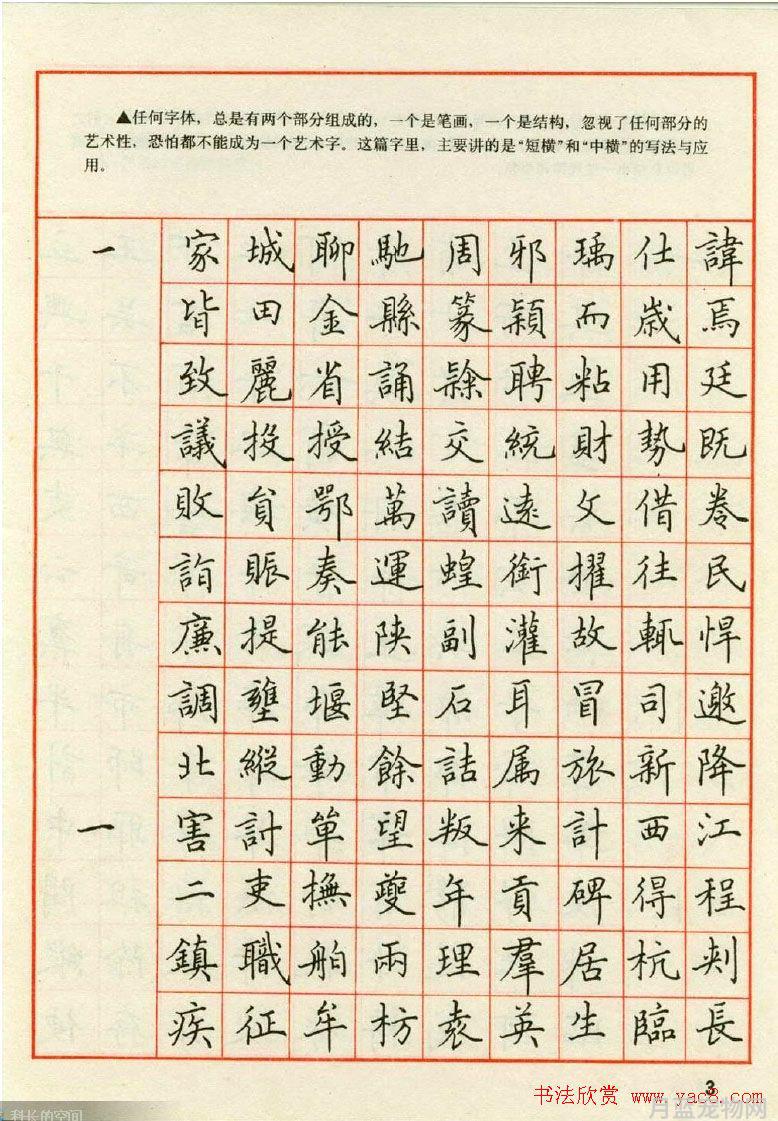 ▲任何字体，总是有两个部分组成的，一个是笔画，一个是结构，忽视了任何部分的
艺术性，恐怕都不能成为一个艺术字。这篇字里，主要讲的是“短横”和“中横”的写法与应
用。
一 家 城 聊 馳 周 邪 瑀 仕 諱
皆 田 金 縣 篆 潁 而 歲 焉
致 麗 省 誦 聘 粘 用 廷
議 投 授 結 交 統 財 勢 既
敗 貟 鄂 萬 讀 遠 文 借 卷
詣 賑 奏 運 蝗 銜 擢 往 民
廉 提 能 陝 副 灌 故 輒 悍
調 壅 堰 堅 石 耳 冒 司 邀
北 縱 動 餘 詰 属 旅 新 降
一 害 討 单 望 叛 来 計 西 江
二 吏 撫 夔 年 貢 碑 得 程
鎮 職 舶 兩 理 羣 居 杭 刺
疾 征 牟 枋 袁 英 生 臨 長
3
书法欣赏 www.yac8.com
月蓝宠物网
科长的空间